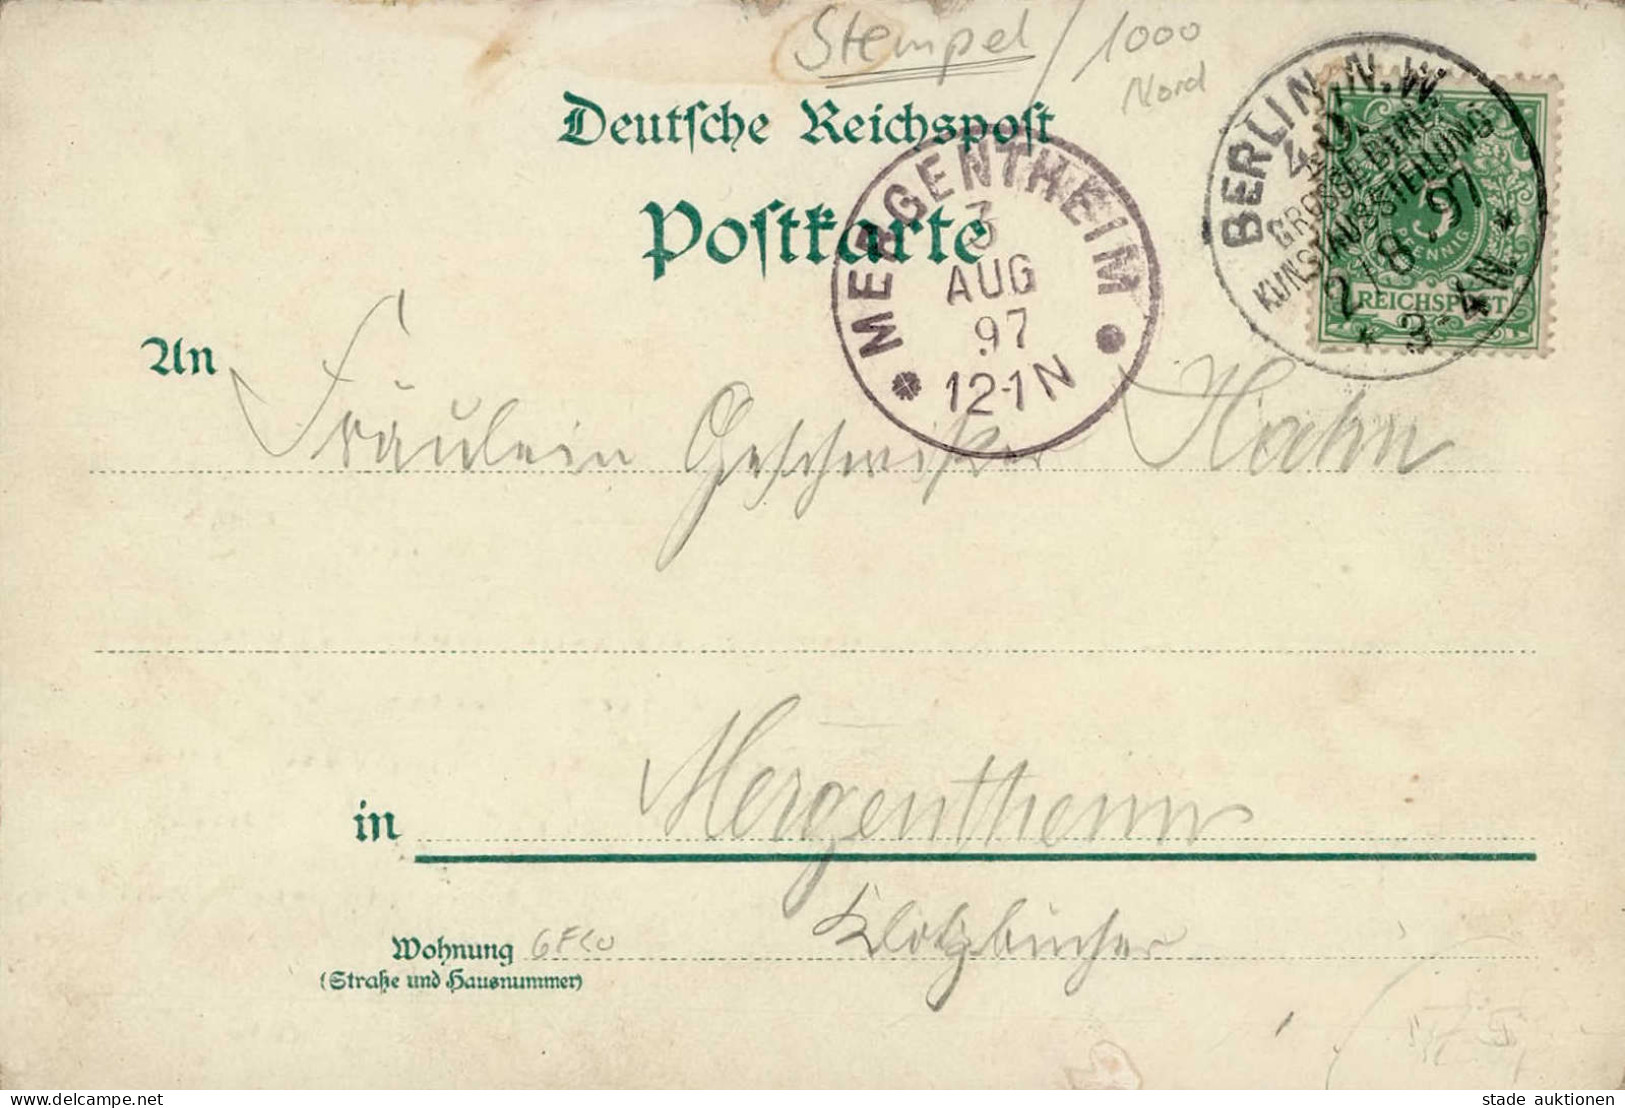 Stempel / 1000
Nord
Deutsche Reichspost
Postkarte
BERLIN N.W.
40.
GROSSE BERL.
KUNSTAUSSTELLUNG
2/8.97
* 3-4 N. *
3
PFENNIG
REICHSPOST
MERGENTHEIM
3
AUG
97
12-1N
An
Fräulein Geschwister Hahn
in Mergentheim
Wohnung
(Straße und Hausnummer)
stade auktionen